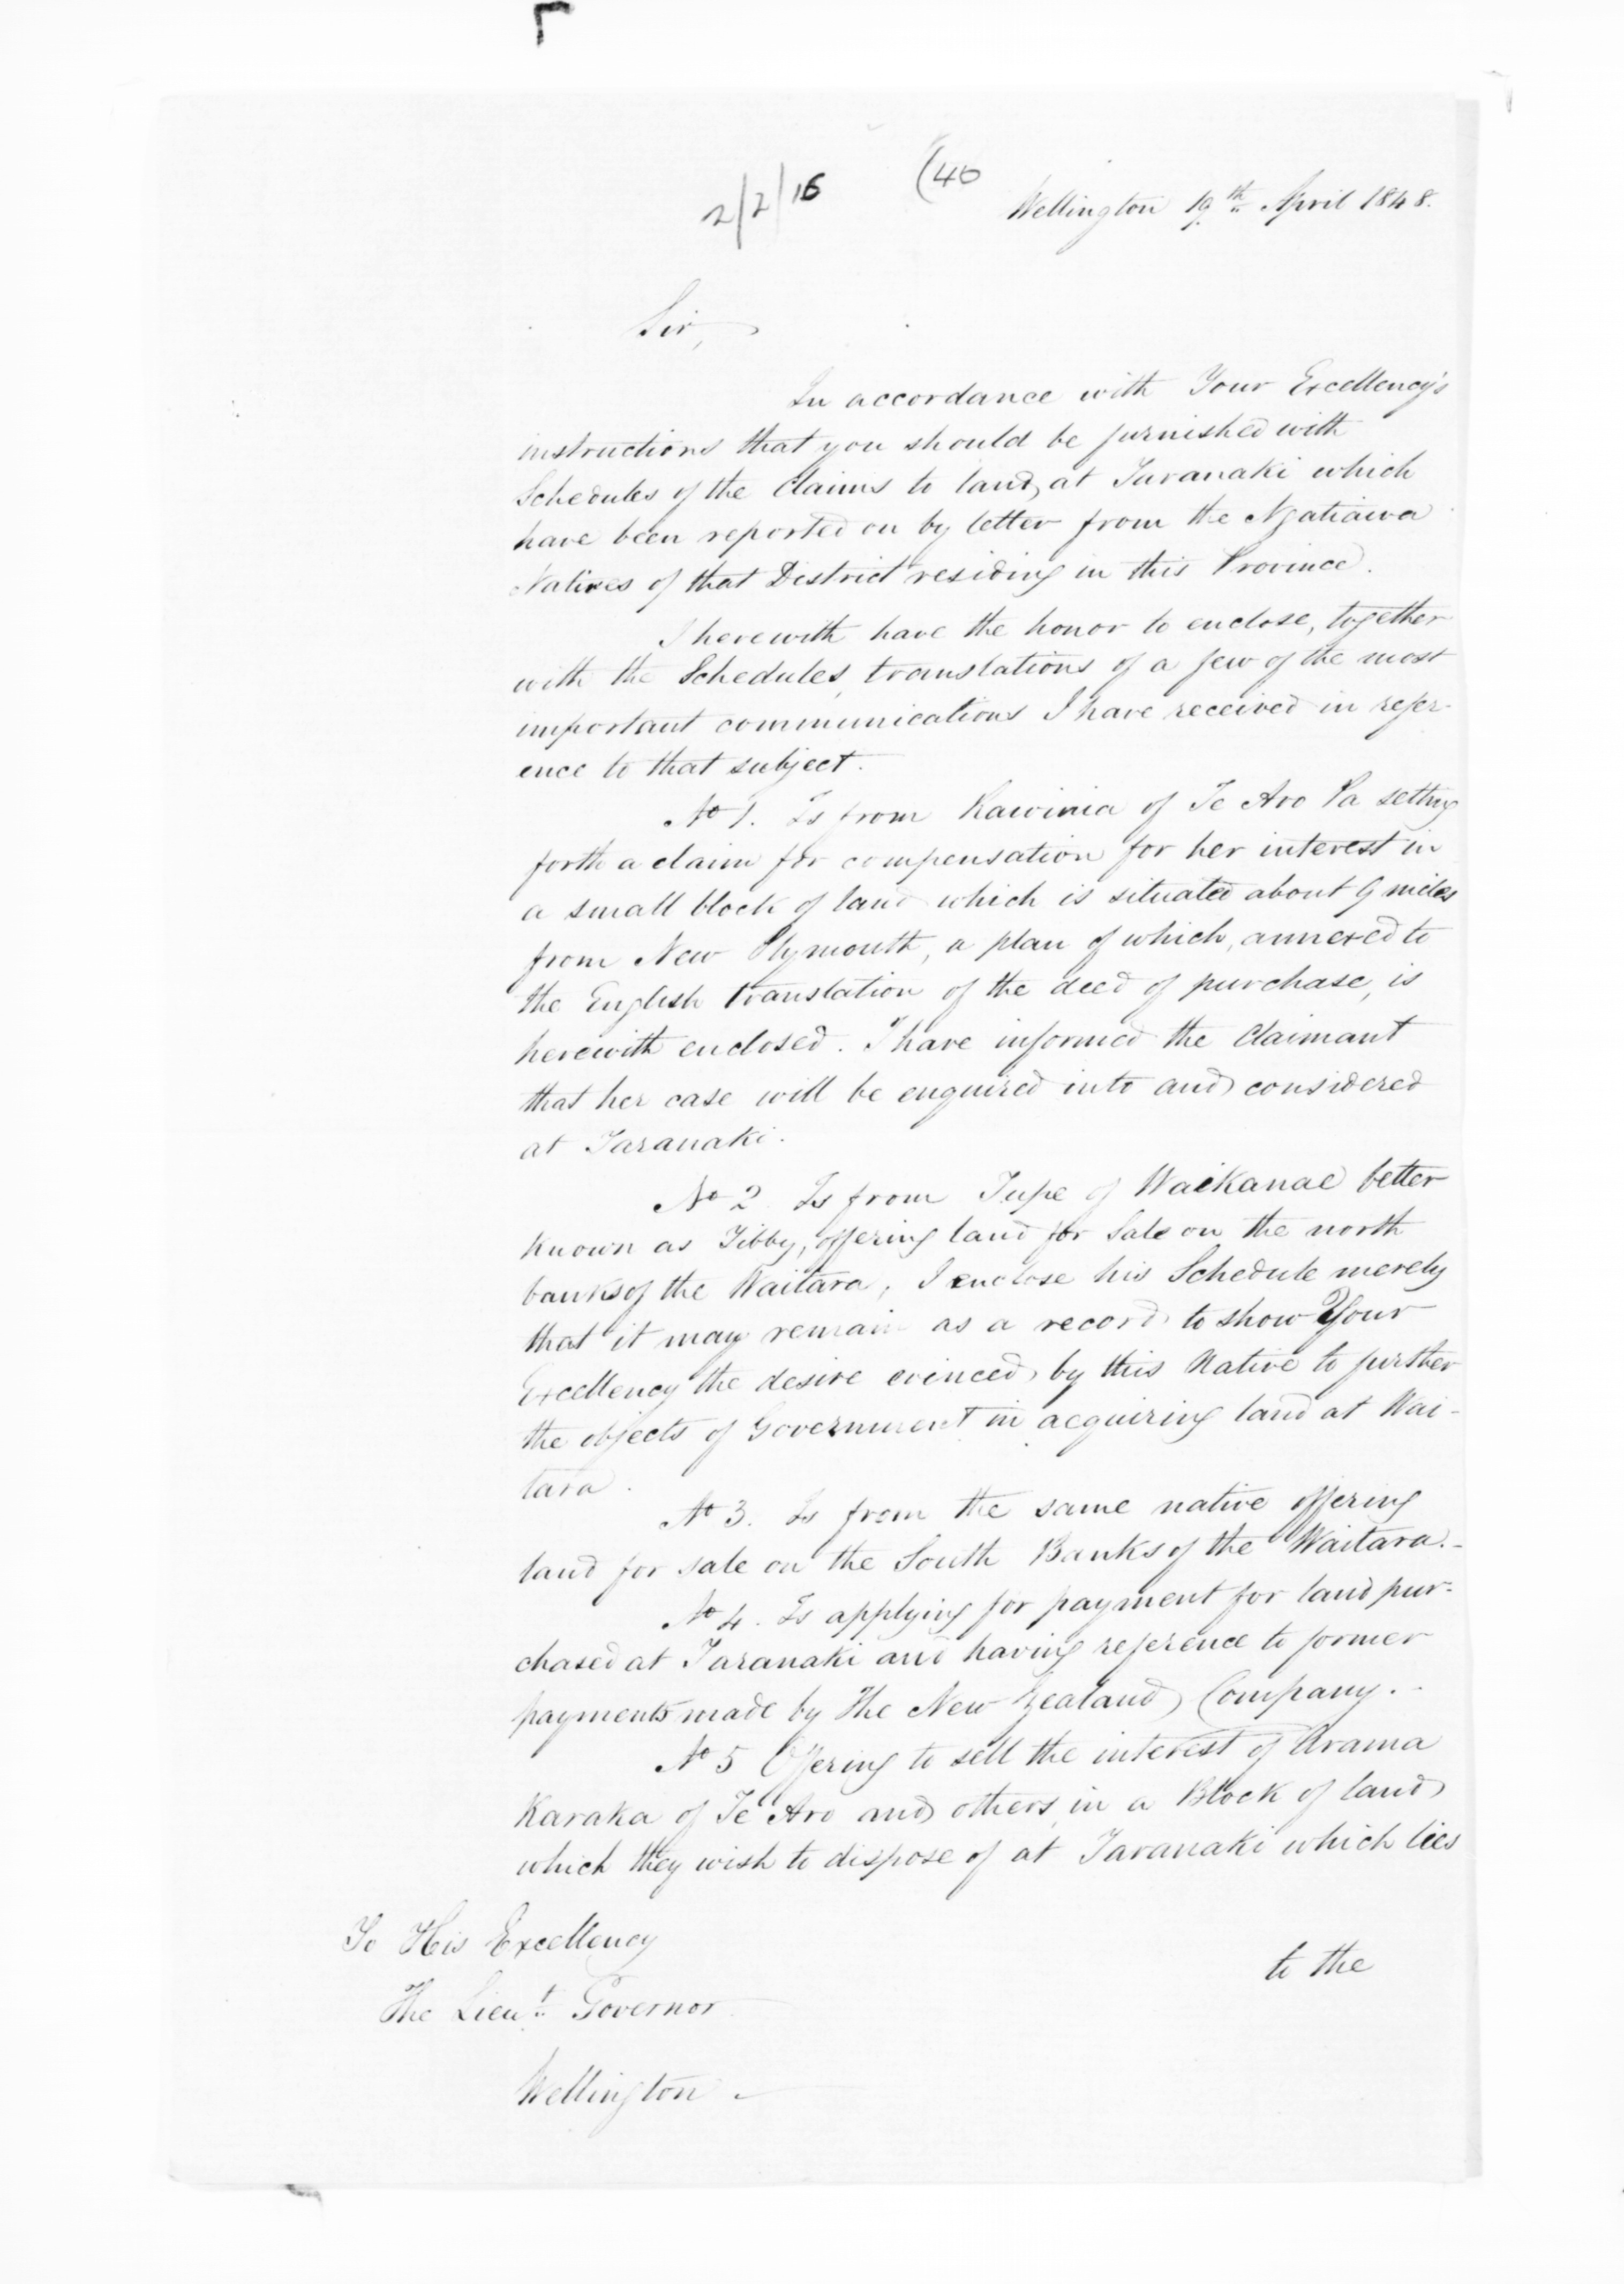 2/2/16 (40
Wellington 19th April 1848.
Sir,
In accordance with Your Excellency's
instructions that you should be furnished with
Schedules of the Claims to land at Taranaki which
have been reported on by letter from the Ngatiawa
Natives of that District residing in this Province.
I herewith have the honor to enclose, together
with the Schedules, translations of a few of the most
important communications I have received in refer-
ence to that subject.
No 1. Is from Rawinia of Te Aro Pa setting
forth a claim for compensation for her interest in
a small block of land which is situated about 9 miles
from New Plymouth, a plan of which, annexed to
the English translation of the deed of purchase, is
herewith enclosed. I have informed the Claimant
that her case will be enquired into and considered
at Taranaki.
No 2 Is from Tupe of Waikanae better
known as Tibby, offering land for Sale on the north
banks of the Waitara, I enclose his Schedule merely
that it may remain as a record to show Your
Excellency the desire evinced by this Native to further
the objects of Government in acquiring land at Wai-
tara.
No 3. Is from the same native offering
land for sale on the South Banks of the Waitara.-
No 4. Is applying for payment for land pur-
chased at Taranaki and having reference to former
payments made by The New Zealand Company.
No 5 Offering to sell the interest of Arama
Karaka of Te Aro and others, in a Block of land
which they wish to dispose of at Taranaki which lies
to the
To His Excellency
The Lieut. Governor
Wellington